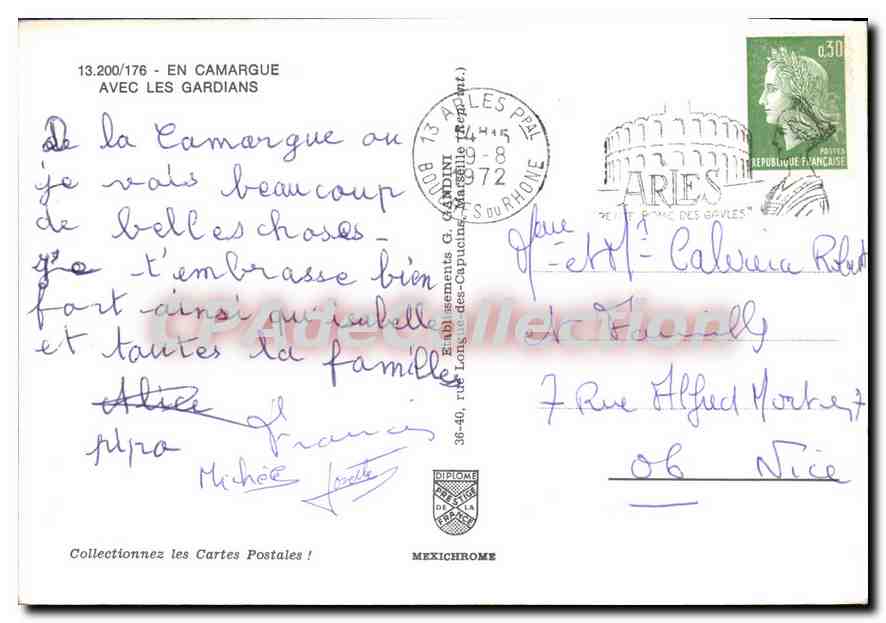 13.200/176 - EN CAMARGUE
AVEC LES GARDIANS
De la Camargue ou
je vais beaucoup
de belles choses -
je t'embrasse bien
fort ainsi qu'isabelle
et toutes la familles
Alice
pipo
Francis
Michèle Josette
Collectionnez les Cartes Postales !
Etablissements G. GANDINI
36-40, rue Longue-des-Capucins, Marseille (Rep. int.)
DIPLOME
PRESTIGE
DE LA
FRANCE
MEXICHROME
13 ARLES PPAL
9-8
1972
BOUCHES DU RHONE
ARLES
ROME DES GAULES"
0,30
POSTES
REPUBLIQUE FRANÇAISE
Mme et Mr Robert
et Famille
7 Rue Alfred Mortier 7
06 Nice
CPAdeCollection.com